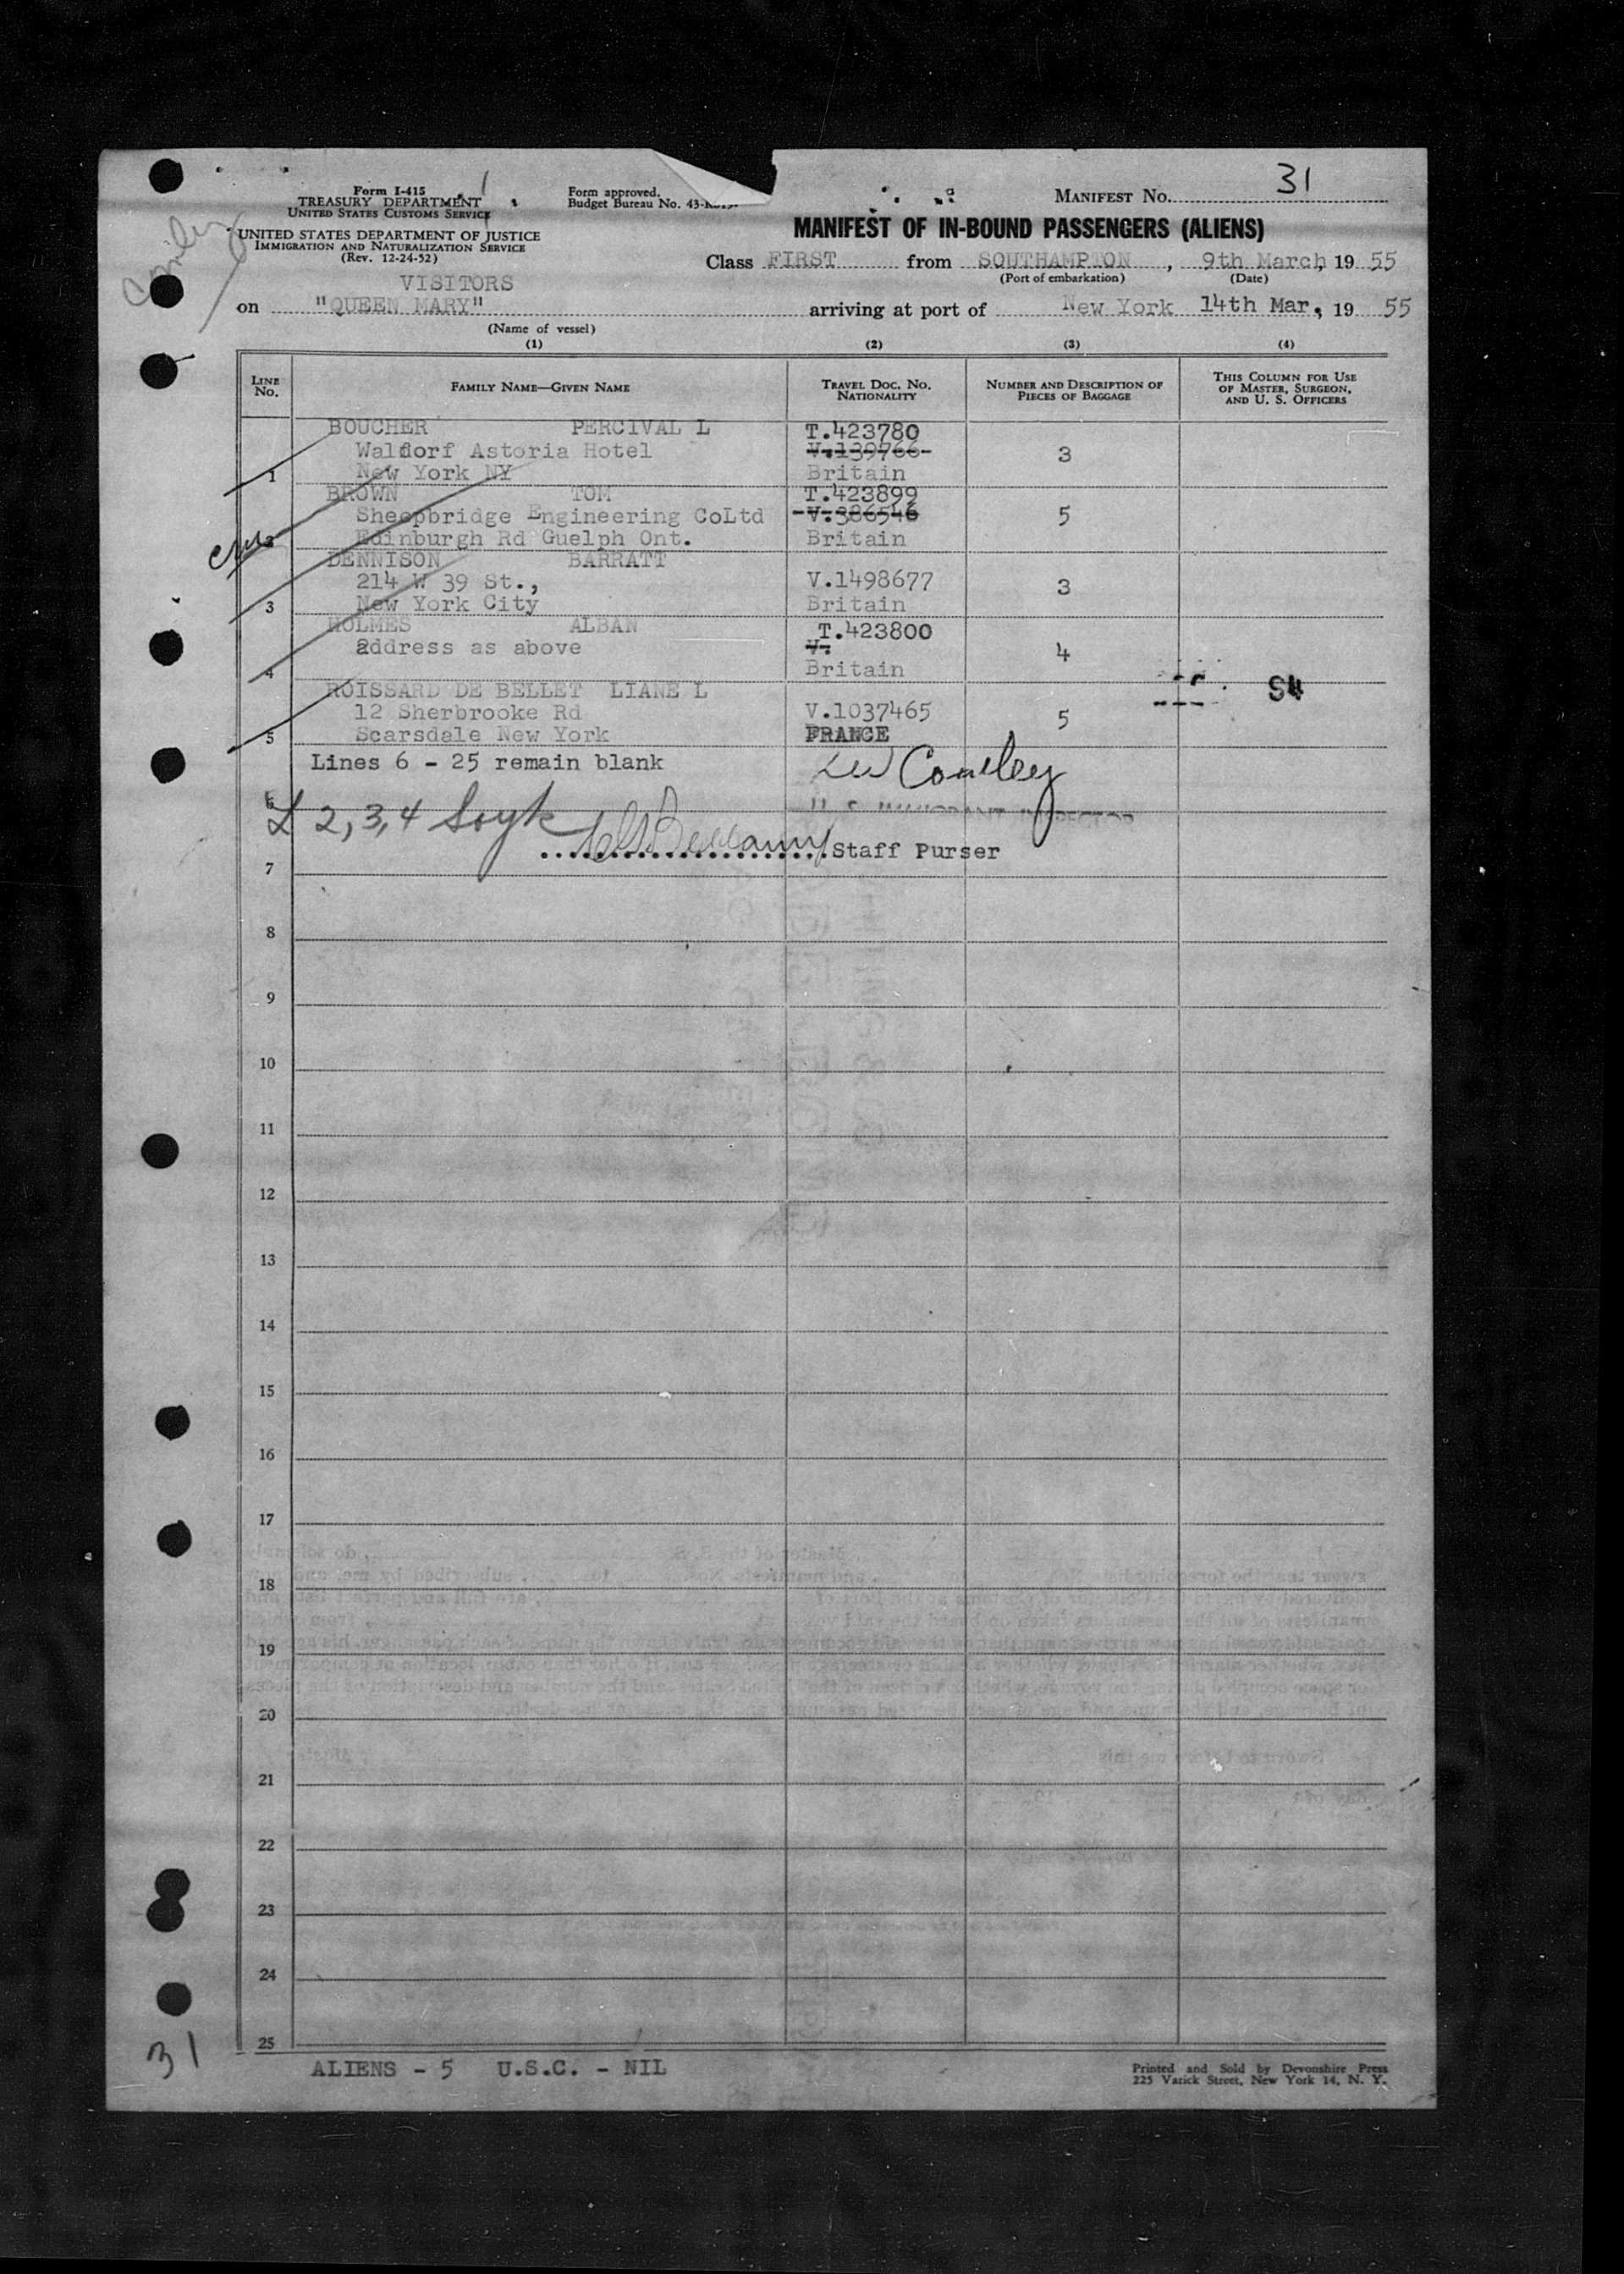 31
Form I-415
TREASURY DEPARTMENT
UNITED STATES CUSTOMS SERVICE
UNITED STATES DEPARTMENT OF JUSTICE
IMMIGRATION AND NATURALIZATION SERVICE
(Rev. 12-24-52)
Form approved.
Budget Bureau No.
MANIFEST NO.
MANIFEST OF IN-BOUND PASSENGERS (ALIENS)
Class FIRST from SOUTHAMPTON, 9th March, 19 55
(Port of embarkation) (Date)
VISITORS
on "QUEEN MARY" arriving at port of New York 14th Mar, 19 55
(Name of vessel)
(1) (2) (3) (4)
LINE NO. FAMILY NAME—GIVEN NAME TRAVEL DOC. NO. NATIONALITY NUMBER AND DESCRIPTION OF PIECES OF BAGGAGE THIS COLUMN FOR USE OF MASTER, SURGEON, AND U. S. OFFICERS
BOUCHER PERCIVAL L T.423780
Waldorf Astoria Hotel V.139766 3
1 New York NY Britain
BROWN TOM T.423899
Sheepbridge Engineering CoLtd V.386546 5
2 Edinburgh Rd Guelph Ont. Britain
DENNISON BARRATT
214 W 39 St., V.1498677 3
3 New York City Britain
HOLMES ALBAN T.423800
address as above V. 4
4 Britain
ROISSARD DE BELLET LIANE L
12 Sherbrooke Rd V.1037465 5
5 Scarsdale New York FRANCE
Lines 6 - 25 remain blank
Conley
U.S. IMMIGRANT INSPECTOR
6
L 2,3,4
Staff Purser
7
8
9
10
11
12
13
14
15
16
17
18
19
20
21
22
23
24
25
31
ALIENS - 5 U.S.C. - NIL
Printed and Sold by Devonshire Press
225 Varick Street, New York 14, N. Y.